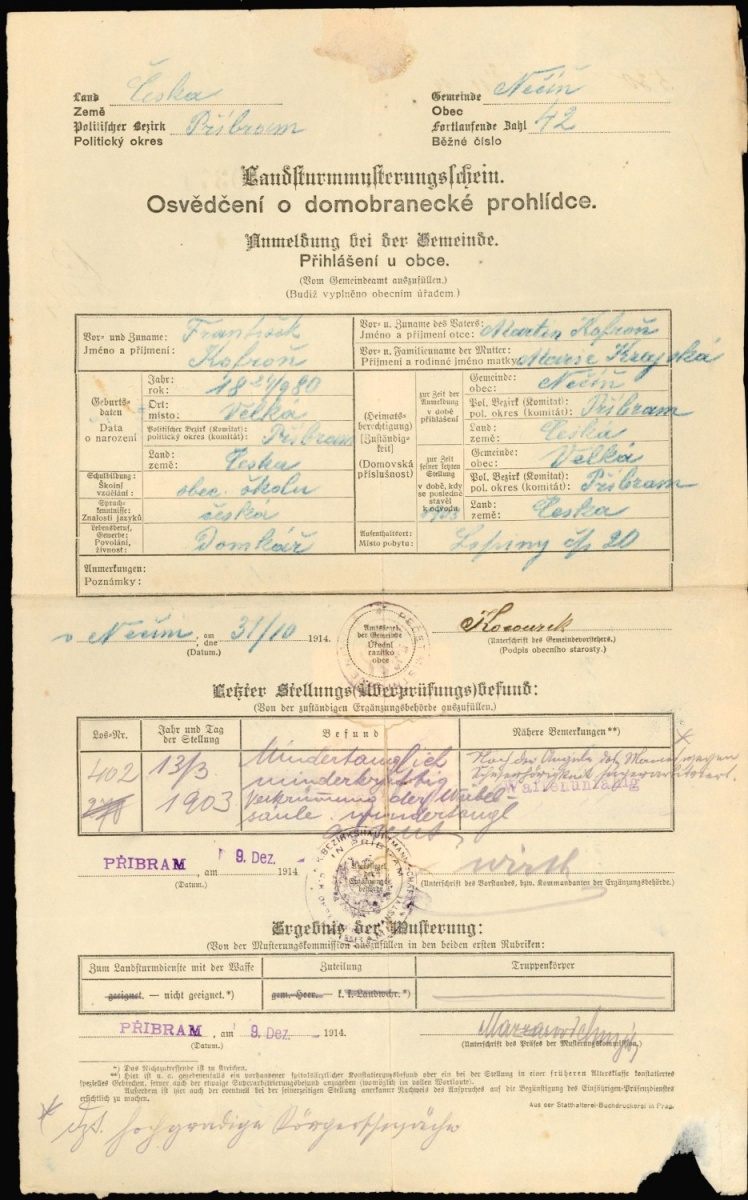 Land Česka
Země
Politischer Bezirk Příbram
Politický okres
Gemeinde Nečín
Obec
Fortlaufende Zahl 42
Běžné číslo
Landsturmmusterungsschein.
Osvědčení o domobranecké prohlídce.
Anmeldung bei der Gemeinde.
Přihlášení u obce.
(Vom Gemeindeamt auszufüllen.)
(Budiž vyplněno obecním úřadem.)
Vor- und Zuname: František
Jméno a příjmení: Kofroň
Vor- u. Zuname des Vaters: Martin Kofroň
Jméno a příjmení otce:
Vor- u. Familienname der Mutter:
Příjmení a rodinné jméno matky: Marie
Geburtsdaten
Data o narození
Jahr:
rok: 1880
Ort:
místo: Velká
Politischer Bezirk (Komitat):
politický okres (komitát): Příbram
Land:
země: Česka
Schulbildung:
Školní vzdělání: obec. školu
Sprachkenntnisse:
Znalosti jazyků: česká
Lebensberuf, Gewerbe:
Povolání, živnost: Domkář
(Heimatsberechtigung)
[Zuständigkeit]
(Domovská příslušnost)
zur Zeit der Anmeldung
v době přihlášení
Gemeinde:
obec: Nečín
Pol. Bezirk (Komitat):
pol. okres (komitát): Příbram
Land:
země: Česká
zur Zeit seiner letzten Stellung
v době, kdy se posledně stavěl k odvodu 1903
Gemeinde:
obec: Velká
Pol. Bezirk (Komitat):
pol. okres (komitát): Příbram
Land:
země: Česka
Aufenthaltsort:
Místo pobytu: čp 20
Anmerkungen:
Poznámky:
v Nečíně, am
dne 31/10 1914.
(Datum.)
Amtssiegel der Gemeinde
Úřadní razítko obce
(Unterschrift des Gemeindevorstehers.)
(Podpis obecního starosty.)
Letzter Stellungs(Überprüfungs)befund:
(Von der zuständigen Ergänzungsbehörde auszufüllen.)
Los-Nr.
Jahr und Tag der Stellung
Befund
Nähere Bemerkungen**)
402
13/3
1903
Mindertauglich
minderkräftig
Verkrümmung der Wirbel-
säule mindertaugl
Nach der Angabe des Mannes wegen
Schwerhörigkeit superarbitriert.
Waffenunfähig
K.K. BEZIRKSHAUPTMANNSCHAFT IN PŘIBRAM
PŘIBRAM, am 9. Dez. 1914
(Datum.)
Wirth
(Unterschrift des Vorstandes, bzw. Kommandanten der Ergänzungsbehörde.)
Ergebnis der Musterung:
(Von der Musterungskommission auszufüllen in den beiden ersten Rubriken:
Zum Landsturmdienste mit der Waffe
Zuteilung
Truppenkörper
geeignet. — nicht geeignet.*)
gem. Heer. — k. k. Landwehr.*)
PŘIBRAM, am 9. Dez. 1914.
(Datum.)
(Unterschrift des Präses der Musterungskommission.)
*) Das Nichtzutreffende ist zu streichen.
**) Hier ist u. a. gegebenenfalls ein vorhandener spitalsärztlicher Konstatierungsbefund oder ein bei der Stellung in einer früheren Altersklasse konstatiertes
spezielles Gebrechen, ferner auch der etwaige Superarbitrierungsbefund anzugeben (womöglich im vollen Wortlaute).
Außerdem ist hier auch der eventuell bei der seinerzeitigen Stellung anerkannte Nachweis des Anspruches auf die Begünstigung des Einjährigen-Präsenzdienstes
ersichtlich zu machen.
Aus der Statthalterei-Buchdruckerei in Prag.
* dzt. hochgradige Körperschwäche